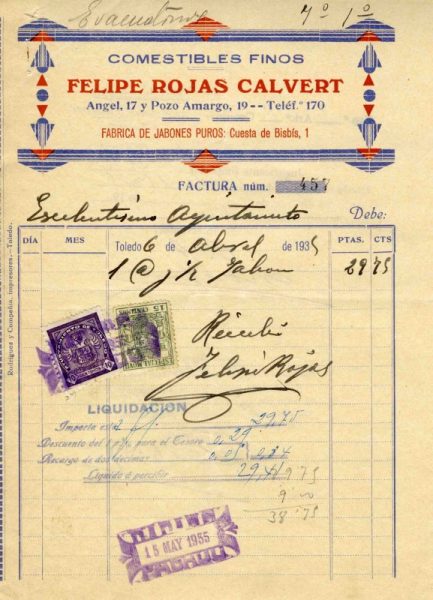 7º 1º
COMESTIBLES FINOS
FELIPE ROJAS CALVERT
Angel, 17 y Pozo Amargo, 19 -- Teléf.º 170
FABRICA DE JABONES PUROS: Cuesta de Bisbís, 1
FACTURA núm. 457
Excelentísimo Ayuntamiento Debe:
DÍA MES Toledo 6 de Abril de 1935 PTAS. CTS
1 @ Jabon 29 75
Rodríguez y Compañía, impresores.--Toledo.
15
Recibí
Felipe Rojas
LIQUIDACION
Importa esta 29,75
Descuento del 1 p% para el Tesoro 0,29
Recargo de dos décimas 0,05 0,34
Líquido á percibir 29,41
9 75
9 00
38 75
15 MAY 1955
PAGADO